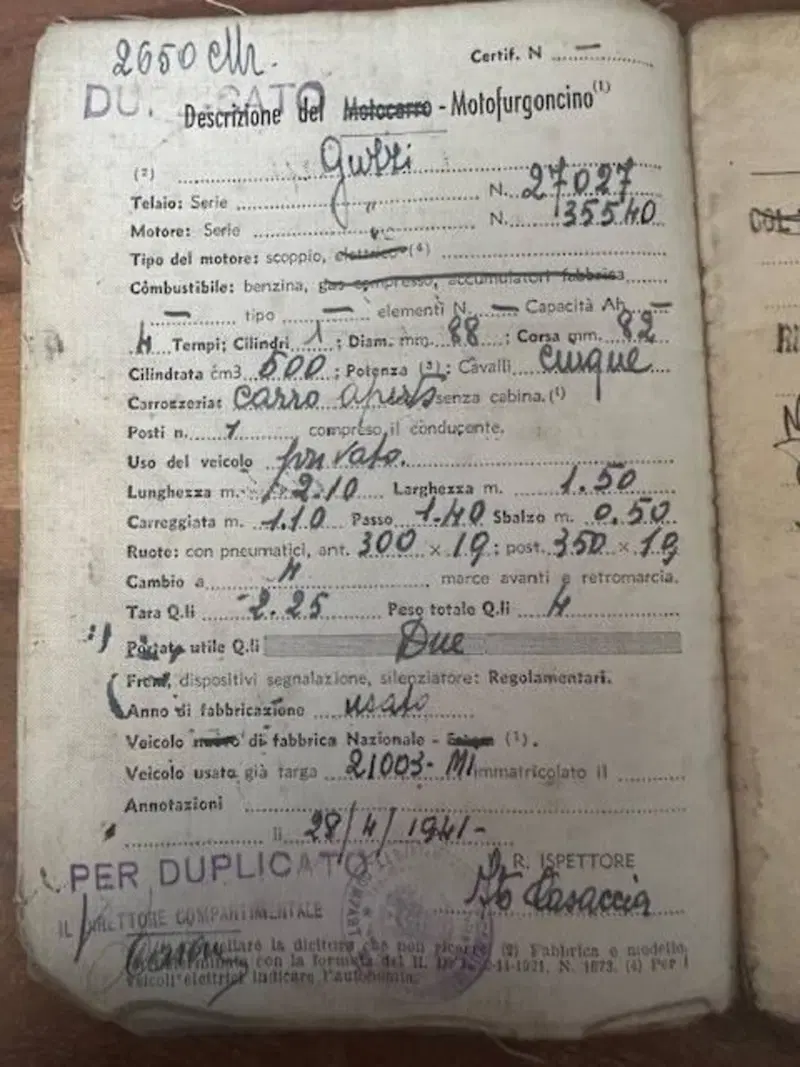 2650 Mr.
Certif. N
DUPLICATO
Descrizione del Motocarro - Motofurgoncino (1)
(2) Guzzi
Telaio: Serie N. 27027
Motore: Serie " N. 35540
Tipo del motore: scoppio, elettrico (4)
Combustibile: benzina, gas compresso, accumulatori fabbrica
— tipo — elementi N. — Capacità Ah —
4 Tempi; Cilindri 1; Diam. mm. 88; Corsa mm. 82
Cilindrata cm3 500; Potenza (3); Cavalli cinque
Carrozzeria: carro aperto senza cabina. (1)
Posti n. 1 compreso il conducente.
Uso del veicolo privato.
Lunghezza m. 2.10 Larghezza m. 1.50
Carreggiata m. 1.10 Passo 1.40 Sbalzo m. 0.50
Ruote: con pneumatici, ant. 300 × 19; post. 350 × 19
Cambio a 4 marce avanti e retromarcia.
Tara Q.li 2.25 Peso totale Q.li 4
Portata utile Q.li Due
Freni, dispositivi segnalazione, silenziatore: Regolamentari.
Anno di fabbricazione usato
Veicolo nuovo di fabbrica Nazionale - Estera (1).
Veicolo usato già targa 21003-MI immatricolato il
Annotazioni
li 28/4/1941-
PER DUPLICATO
R. ISPETTORE
Ito Casaccia
IL DIRETTORE COMPARTIMENTALE
cellare la dicitura che non ricorre (2) Fabbrica e modello.
con la formula del R. D. 2-11-1921, N. 1673. (4) Per i
veicoli elettrici indicare l'autonomia.